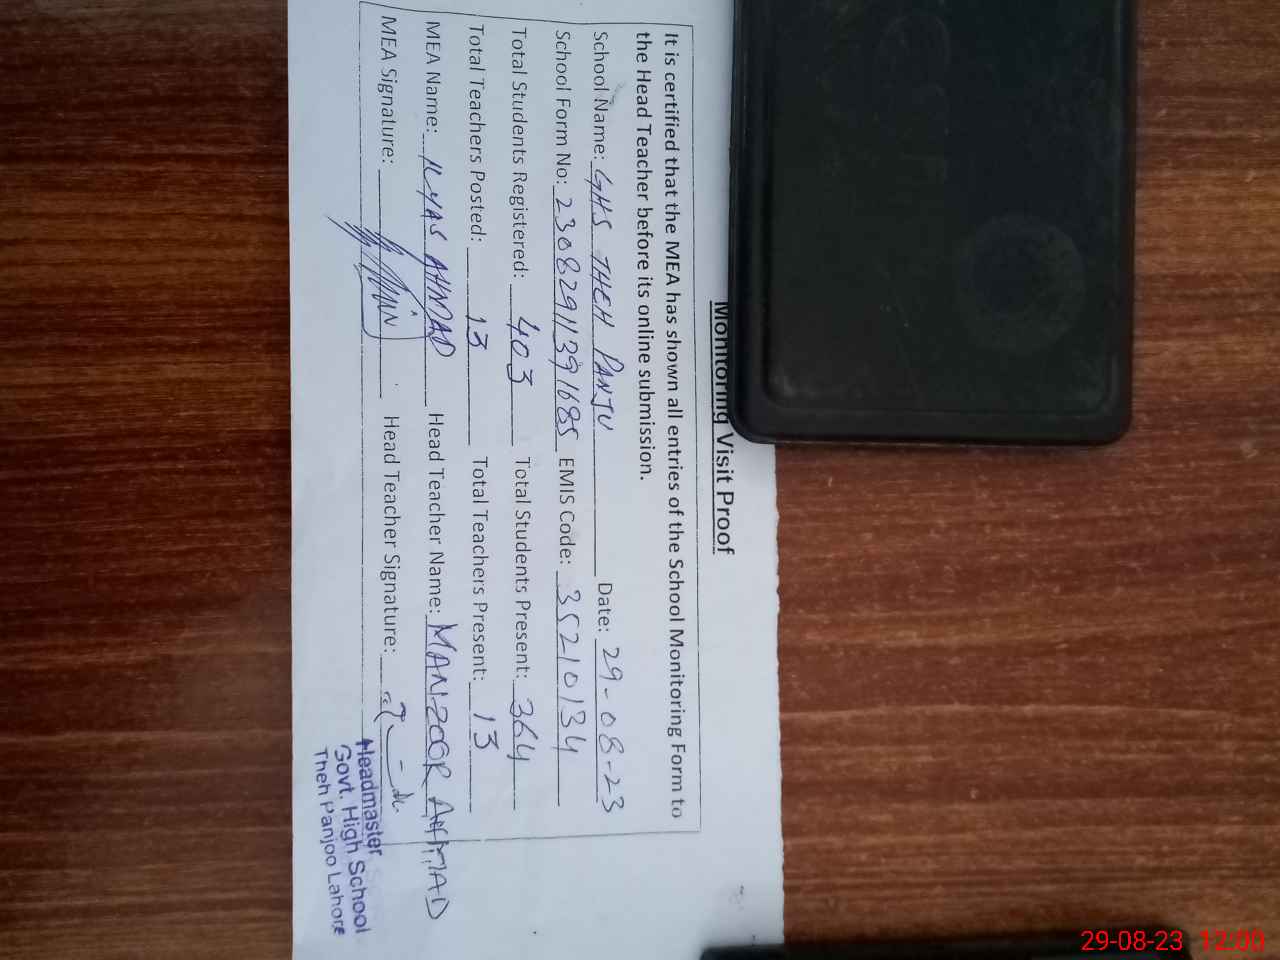 Monitoring Visit Proof
It is certified that the MEA has shown all entries of the School Monitoring Form to
the Head Teacher before its online submission.
School Name: GHS THEH PANJU Date: 29-08-23
School Form No: 23082911391685 EMIS Code: 35210134
Total Students Registered: 403 Total Students Present: 364
Total Teachers Posted: 13 Total Teachers Present: 13
MEA Name: ILYAS AHMAD Head Teacher Name: MANZOOR AHMAD
MEA Signature: Head Teacher Signature:
Headmaster
Govt. High School
Theh Panjoo Lahore
29-08-23 12:00